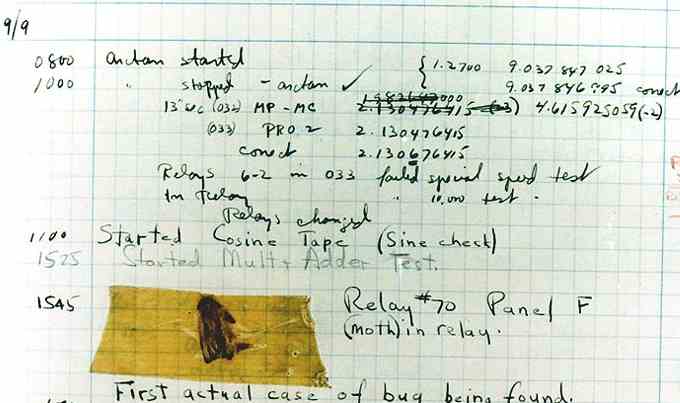 9/9
0800 arctan started { 1.2700 9.037 847 025
1000 " stopped - arctan ✓ 9.037 846 995 conect
13" sec (032) MP - MC 2.130476415 4.615925059(-2)
(033) PRO 2 2.130476415
conect 2.130676415
Relays 6-2 in 033 failed special speed test
In Relay " 10,000 test .
Relays changed
1100 Started Cosine Tape (Sine check)
1525 Started Mult + Adder Test.
1545 Relay #70 Panel F
(moth) in relay.
First actual case of bug being found.